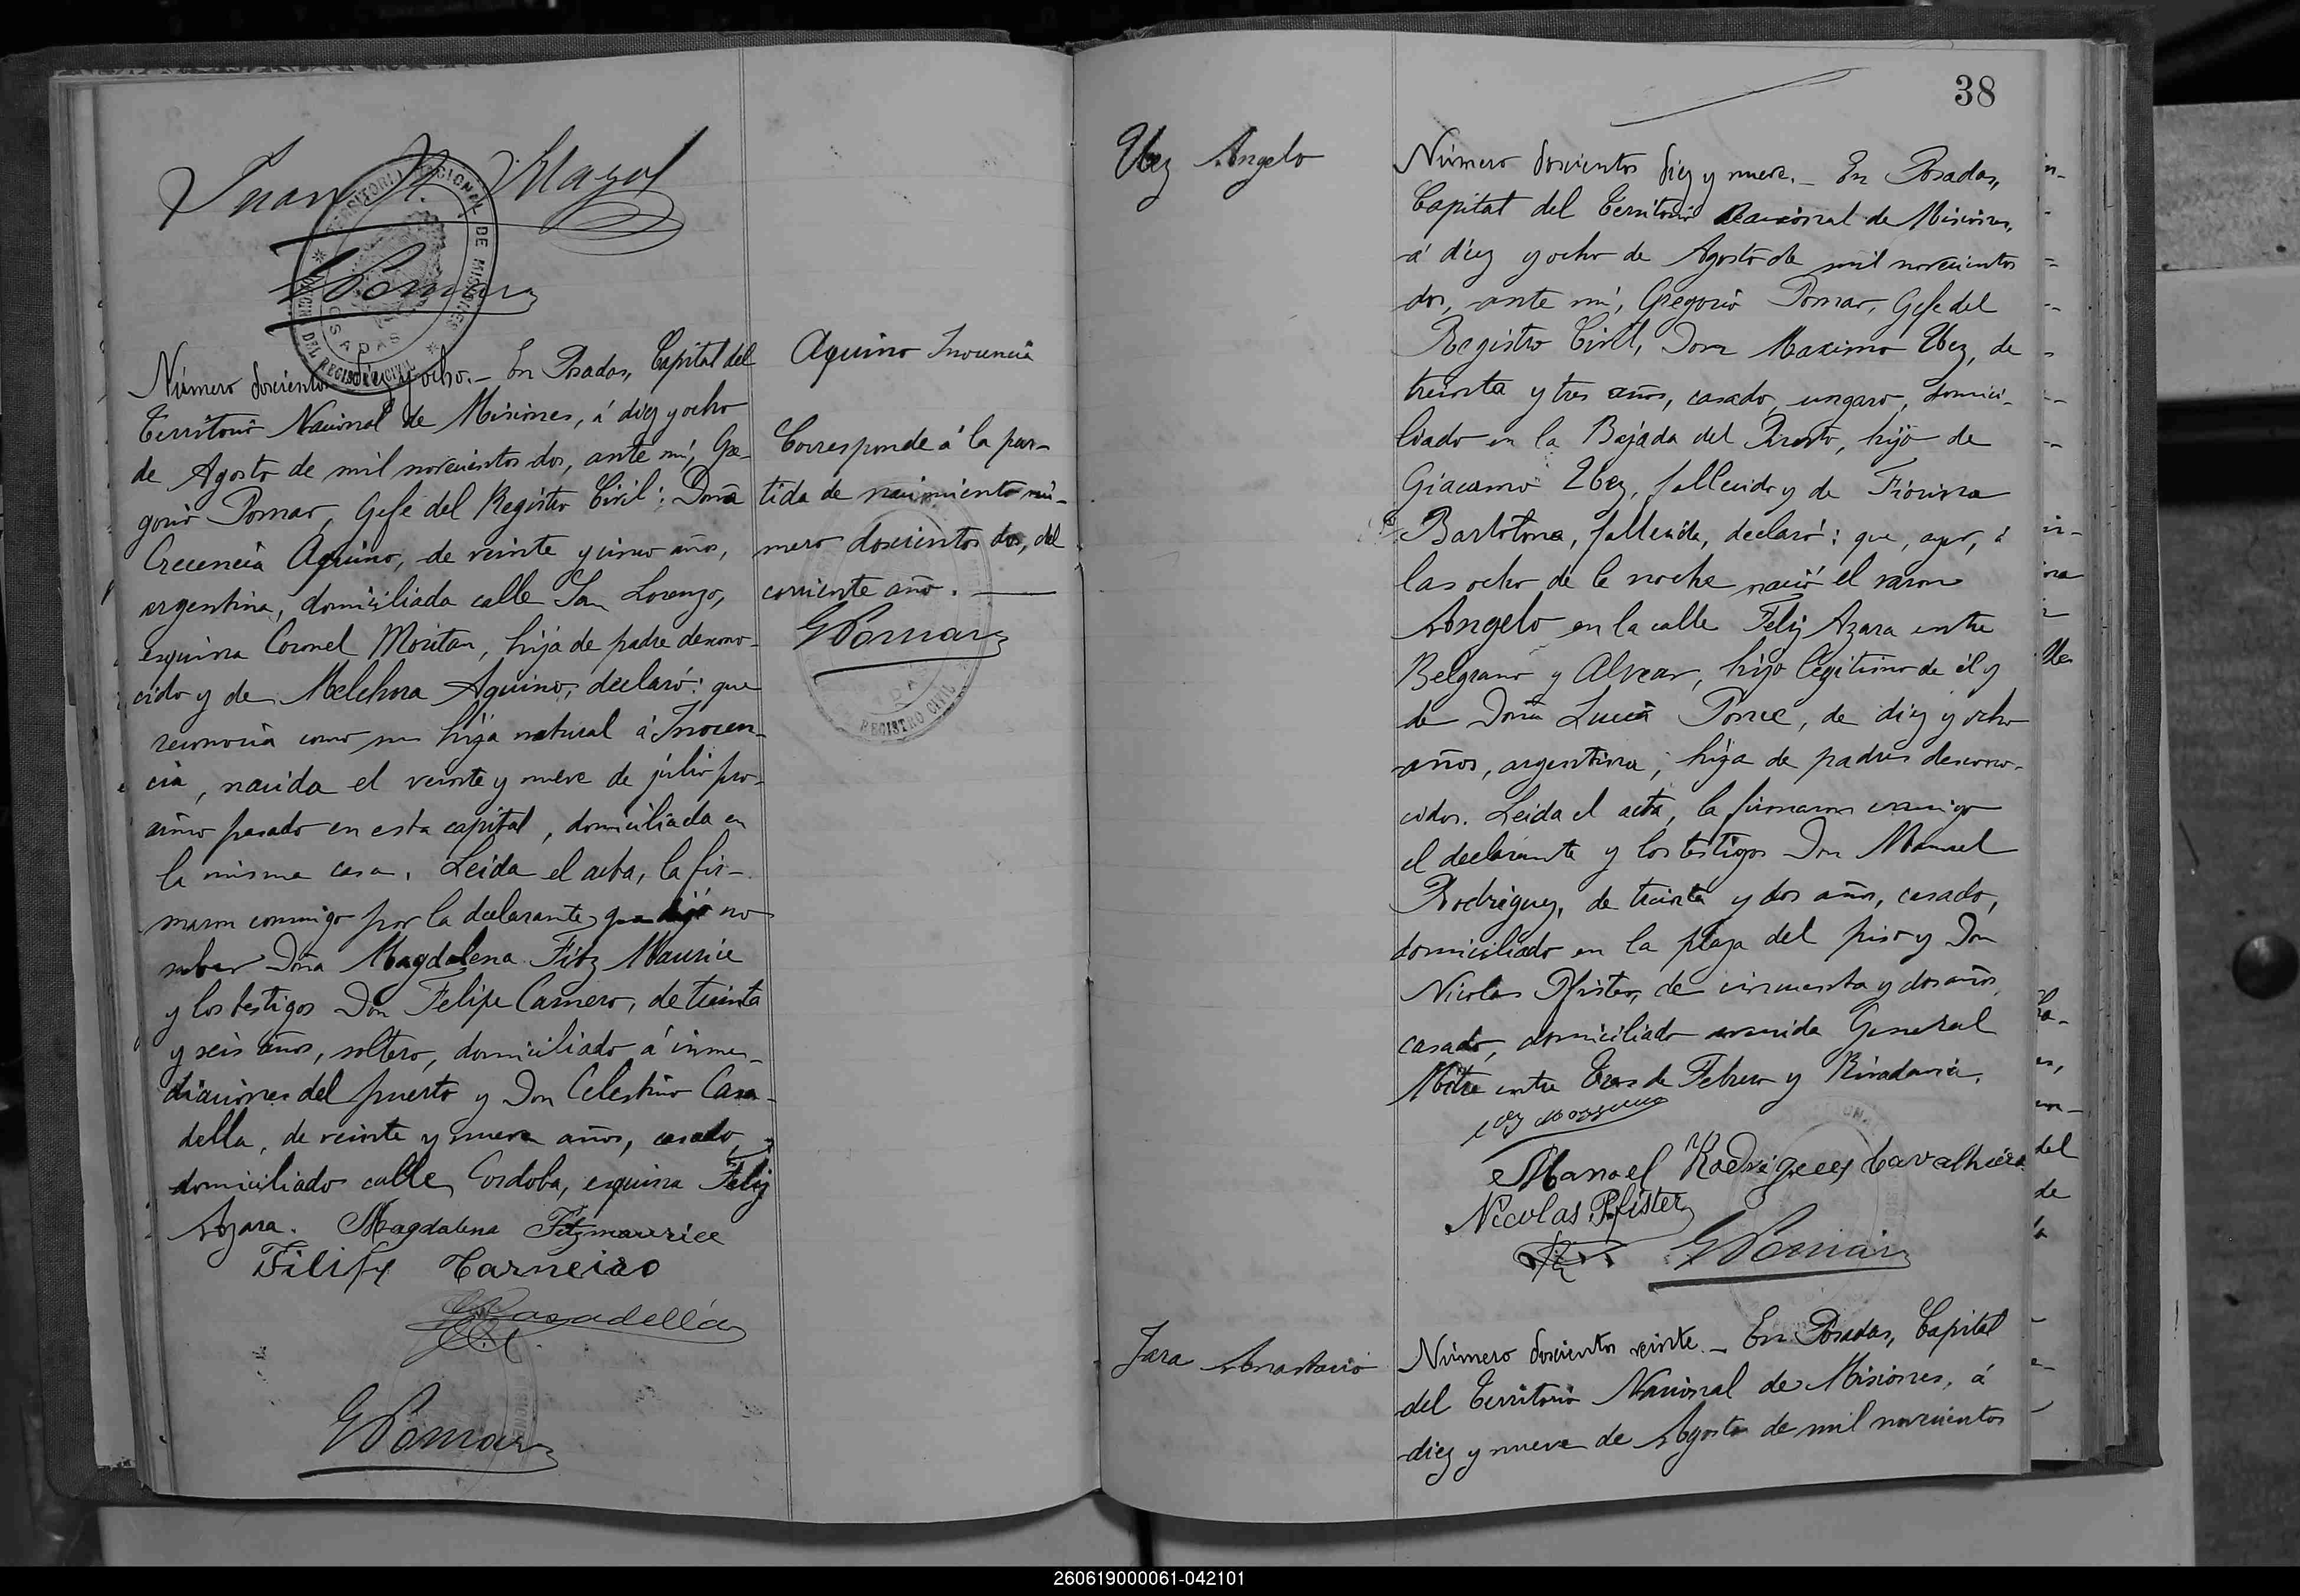 Juan
GPomar
TERRITORIO NACIONAL DE MISIONES
POSADAS
DEL REGISTRO CIVIL
Número doscientos diez y ocho.– En Posadas, Capital del
Territorio Nacional de Misiones, á diez y ocho
de Agosto de mil novecientos dos, ante mí, Gre-
gorio Pomar, Gefe del Registro Civil: Doña
Crecencia Aquino, de veinte y cinco años,
argentina, domiciliada calle San Lorenzo,
esquina Coronel Moritan, hija de padre descono-
cido y de Melchora Aquino, declaró: que
reconocia como su hija natural á Inocen-
cia, nacida el veinte y nueve de julio pro-
simo pasado en esta capital, domiciliada en
la misma casa. Leida el acta, la fir-
maron conmigo por la declarante que dijo no
saber Doña Magdalena Fitz Maurice
y los testigos Don Felipe Carnero, de treinta
y seis años, soltero, domiciliado á inme-
diaciones del puerto y Don Celestino Casa-
della, de veinte y nueve años, casado,
domiciliado calle Cordoba, esquina Feliz
Azara. Magdalena Fitzmaurice
Filipe Carneiro
CCasadellá
GPomar
Aquino Inocencia
Corresponde á la par-
tida de nacimiento nú-
mero doscientos dos, del
corriente año.
GPomar
REGISTRO CIVIL
38
Ubez Angelo
Número doscientos diez y nueve.– En Posadas,
Capital del Territorio Nacional de Misiones,
á diez y ocho de Agosto de mil novecientos
dos, ante mí, Gregorio Pomar, Gefe del
Registro Civil, Don Maximo Ubez, de
treinta y tres años, casado, ungaro, domici-
liado en la Bajada del Puerto, hijo de
Giacamo Ubez, fallecido y de Fiorina
Bartotona, fallecida, declaró: que, ayer, á
las ocho de la noche nació el varon
Angelo en la calle Feliz Azara entre
Belgrano y Alvear, hijo legitimo de él y
de Doña Lucia Ponce, de diez y ocho
años, argentina, hija de padres descono-
cidos. Leida el acta, la firmaron conmigo
el declarante y los testigos Don Manuel
Rodriguez, de treinta y dos años, casado,
domiciliado en la plaza del piso y Don
Nicolas Pfister, de cincuenta y dos años,
casado, domiciliado avenida General
Mitre entre Tres de Febrero y Rivadavia.
Manoel Rodrigues Cavalheiro
Nicolas Pfister
GPomar
Jara Anastacio
Número doscientos veinte.– En Posadas, Capital
del Territorio Nacional de Misiones, á
diez y nueve de Agosto de mil novecientos
260619000061-042101